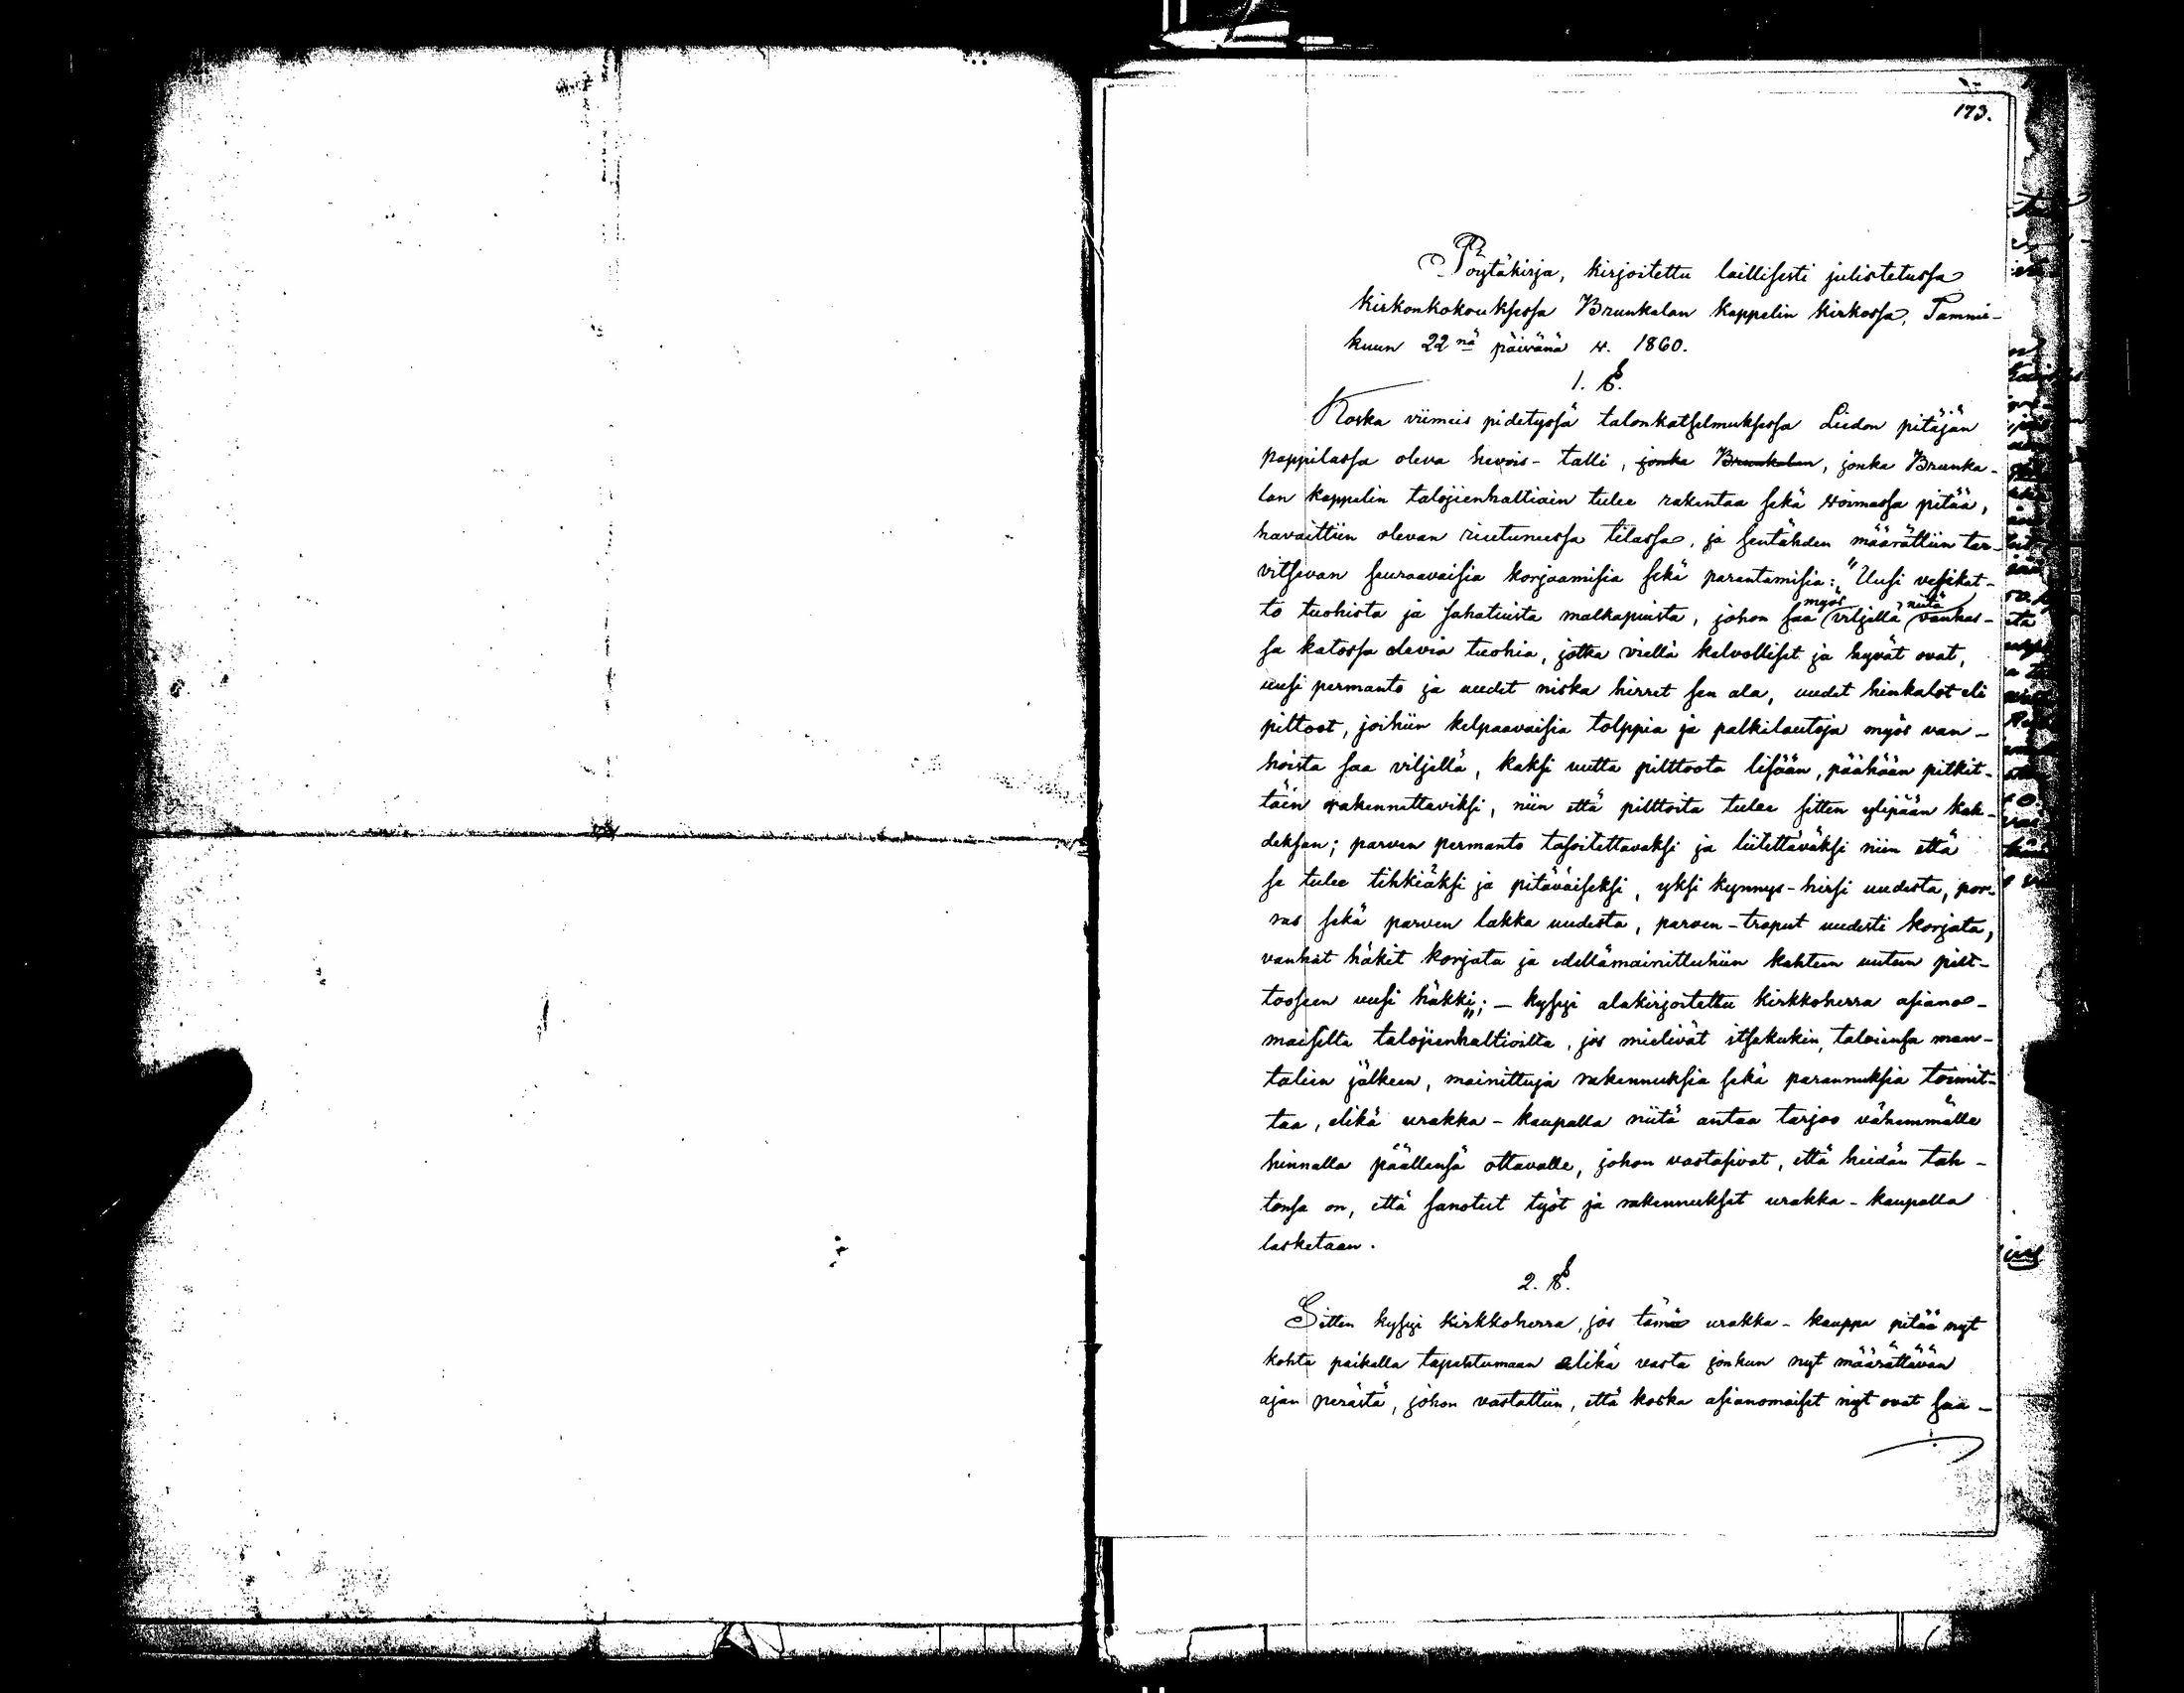 173.
Pöytäkirja, kirjoitettu laillisesti julistetussa
kirkonkokouksessa Brunkalan kappelin kirkossa, Tammi-
kuun 22nä päivänä v. 1860.
1. §.
Koska viimeis pidetyssä talonkatselmuksessa Liedon pitäjän
pappilassa oleva hevois-talli, jonka Brunkalan, jonka Brunka-
lan kappelin talojienhaltiain tulee rakentaa sekä voimassa pitää,
havaittiin olevan rietuneessa tilassa, ja sentähden määrättiin tar-
vitsevan seuraavaisia korjaamisia sekä parantamisia: "Uusi vesikat-
to tuohista ja sahatuista malkapuista, johon saa myös viljellä niitä vanhas-
sa katossa olevia tuohia, jotka viellä kelvolliset ja hyvät ovat,
uusi permanto ja uudet niska hirret sen ala, uudet hinkalot eli
piltoot, joihin kelpaavaisia tolppia ja palkilautoja myös van-
hoista saa viljellä, kaksi uutta pilttoota lisään, päähään pitkit-
täin rakennettaviksi, niin että pilttoita tulee sitten ylipään kah-
deksan; parven permanto tasoitettavaksi ja liitettäväksi niin että
se tulee tihkiäksi ja pitäväiseksi, yksi kynnys-hirsi uudesta, por-
ras sekä parven lakka uudesta, parven-traput uudesti korjata,
vanhat häkit korjata ja edellämainittuhiin kahteen uuteen pilt-
tooseen uusi häkki"; — kysyi alakirjoitettu kirkkoherra asiano-
maisilta talojienhaltioilta, jos mielivät itsekukin, taloiensa man-
talien jälkeen, mainittuja rakennuksia sekä parannuksia toimit-
taa, elikä urakka-kaupalla niitä antaa tarjoo vähemmälle
hinnalla päällensä ottavalle, johon vastasivat, että heidän tah-
tonsa on, että sanotut työt ja rakennukset urakka-kaupalla
lasketaan.
2. §.
Sitten kysyi kirkkoherra, jos tämä urakka-kauppa pitää nyt
kohta paikalla tapahtumaan elikä vasta jonkun nyt määrättävän
ajan perästä, johon vastattiin, että koska asianomaiset nyt ovat saa-